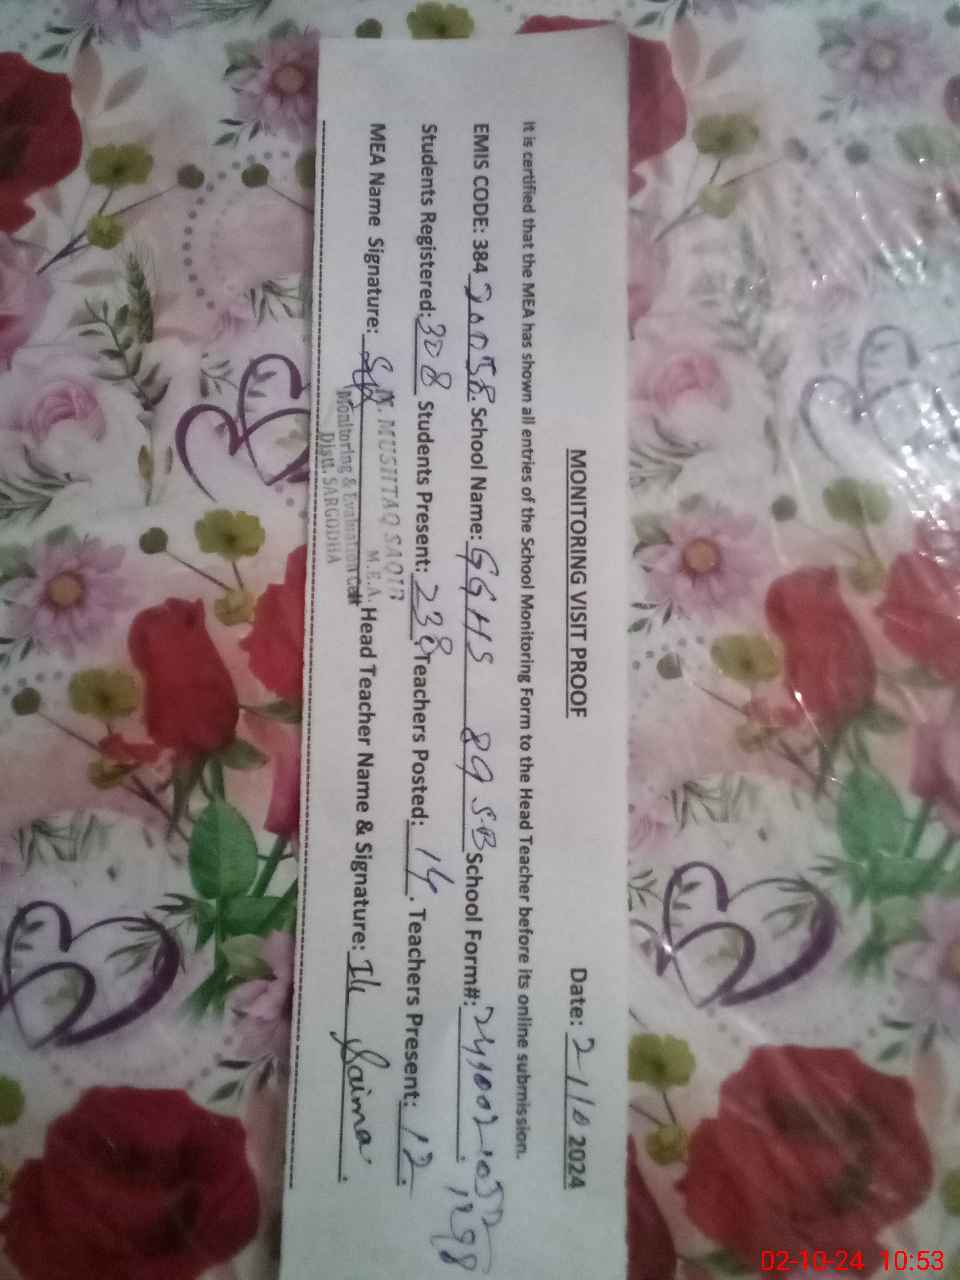 MONITORING VISIT PROOF
Date: 2/10 2024
It is certified that the MEA has shown all entries of the School Monitoring Form to the Head Teacher before its online submission.
EMIS CODE: 384 20058. School Name: GGHS 89 S.B School Form#:
Students Registered: 308 Students Present: 238 Teachers Posted: 14. Teachers Present: 12.
MEA Name Signature: Head Teacher Name & Signature: Saima.
MUSHTAQ SAQIB
M.E.A.
Monitoring & Evaluation Cell
Distt. SARGODHA
02-10-24 10:53